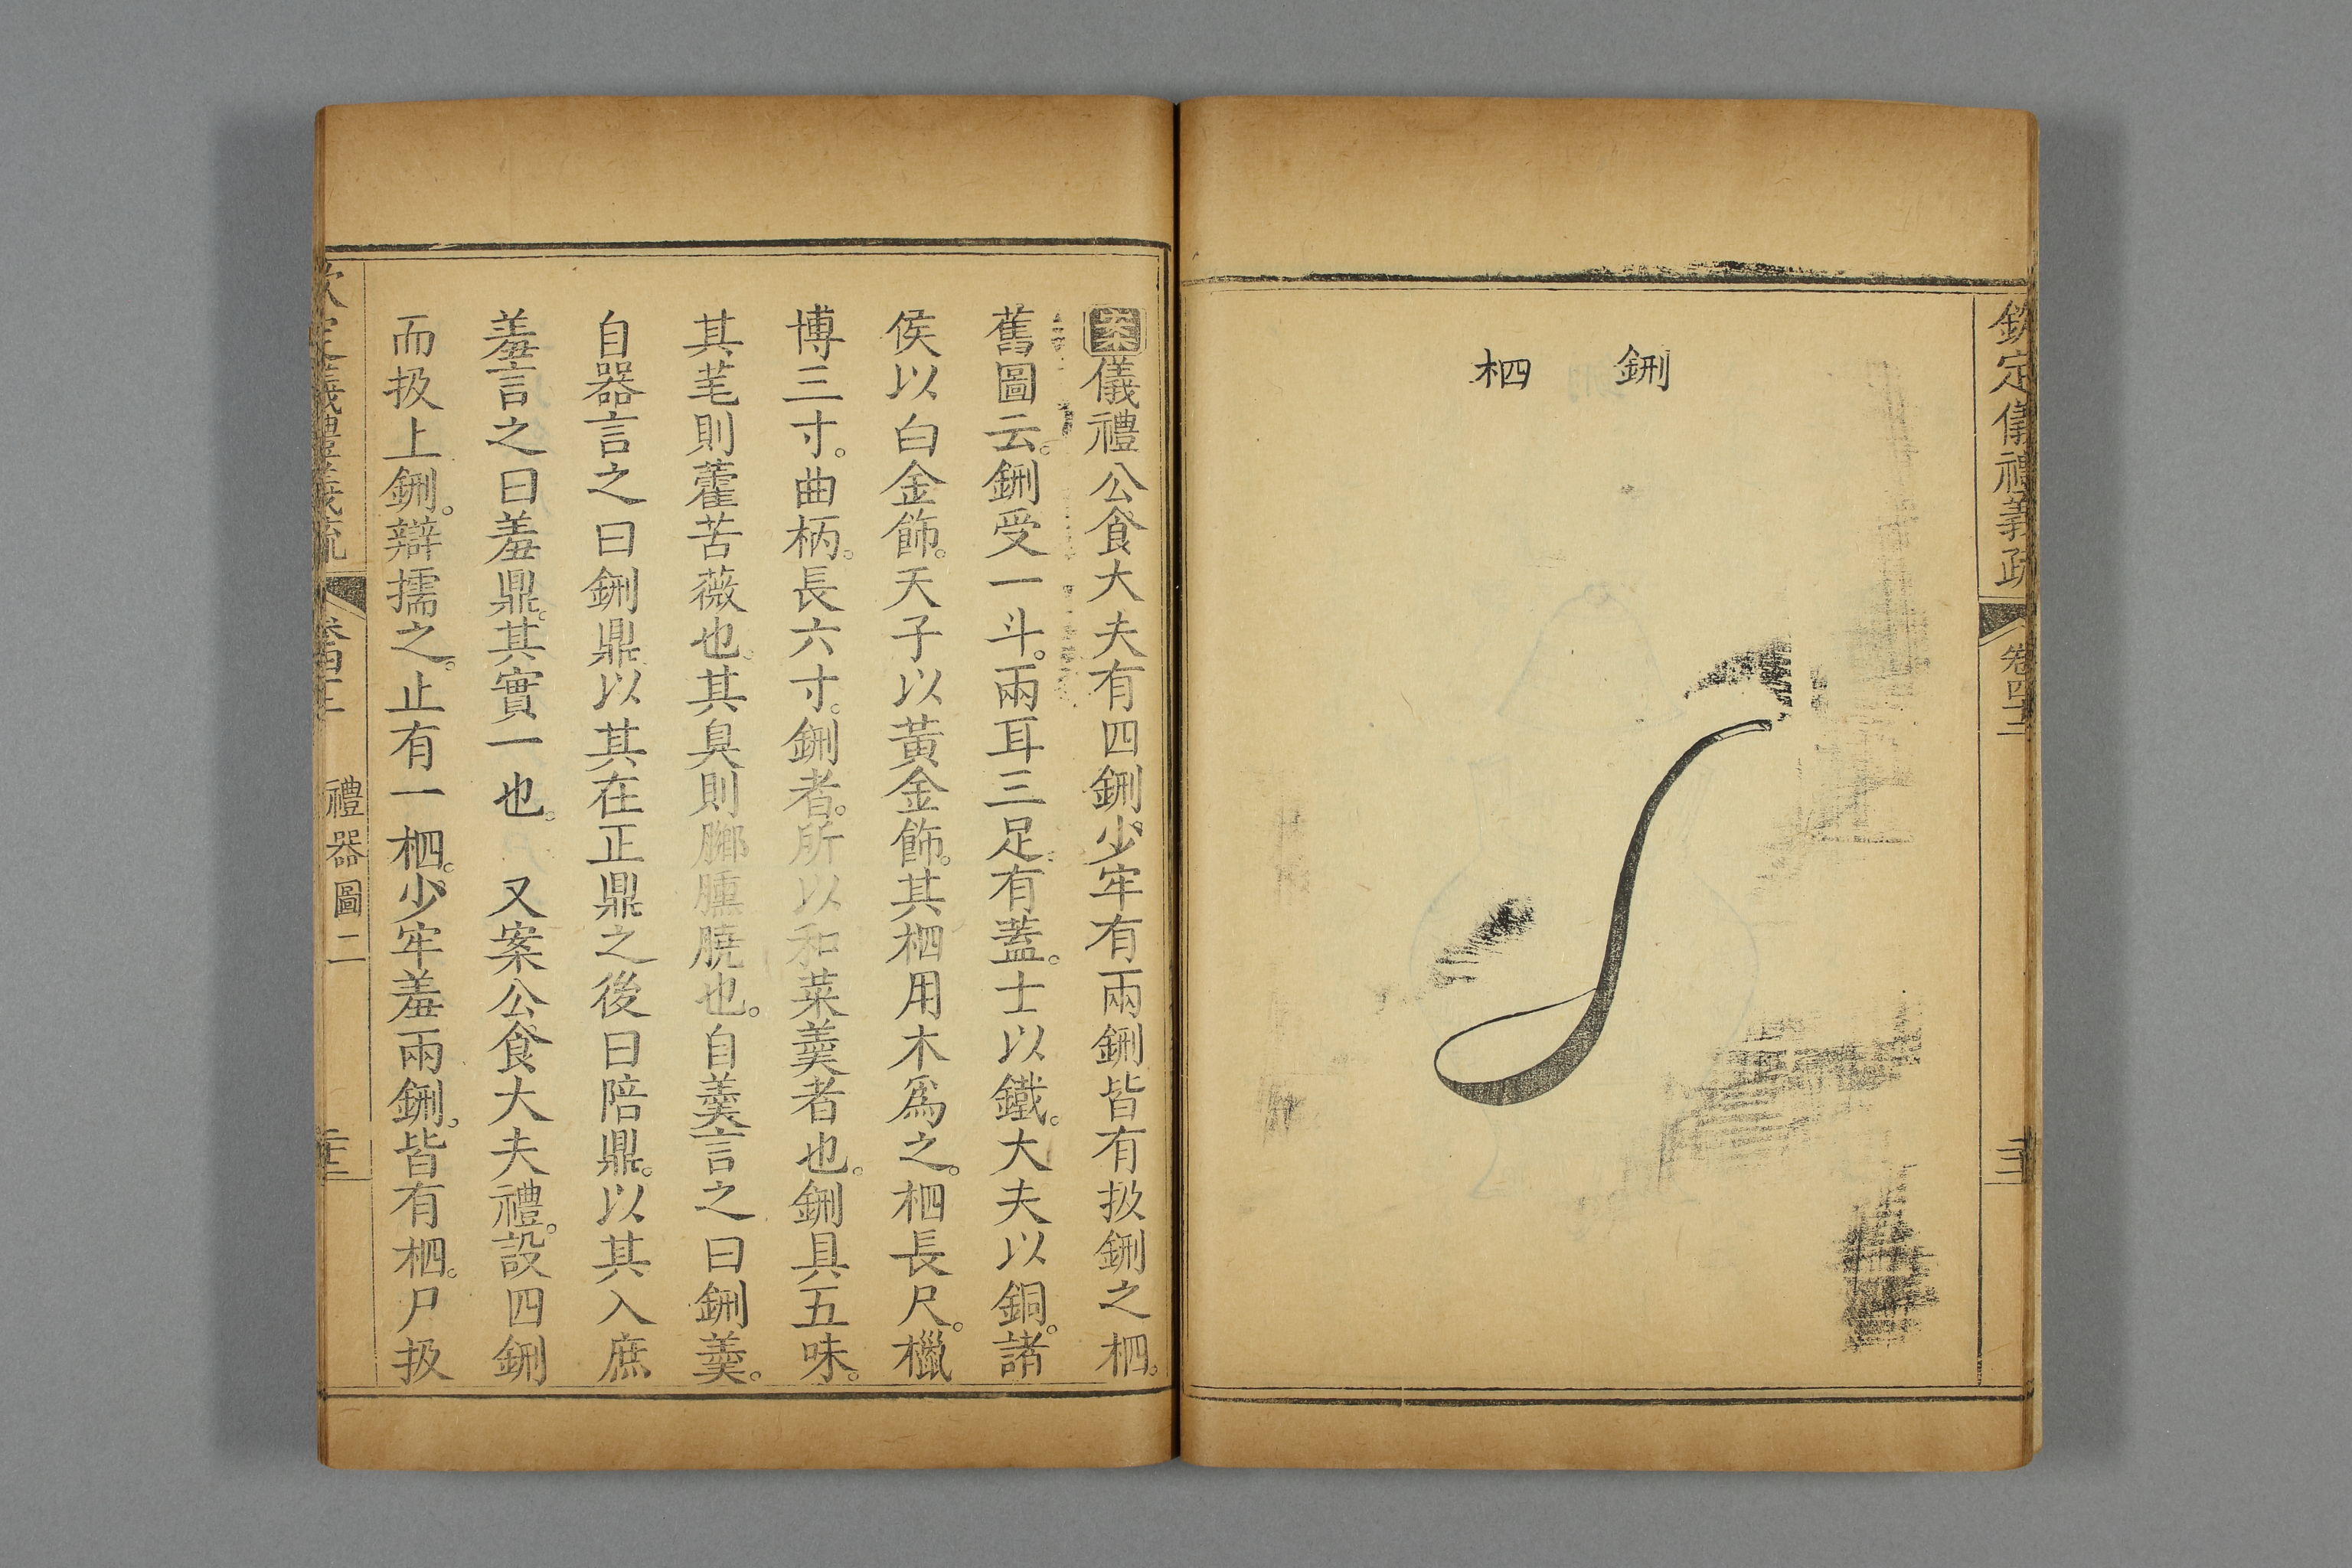 欽定儀禮義疏
卷四十二
鉶
柶
案儀禮公食大夫有四鉶。少牢有兩鉶皆有扱鉶之柶。
舊圖云。鉶受一斗。兩耳三足。有蓋。士以鐵。大夫以銅。諸
侯以白金飾。天子以黃金飾。其柶用木爲之。柶長尺。㯿
博三寸。曲柄。長六寸。鉶者。所以和菜羹者也。鉶具五味。
其芼則藿苦薇也。其臭則膷臐膮也。自羹言之曰鉶羹。
自器言之曰鉶鼎以其在正鼎之後曰陪鼎。以其入庶
羞言之曰羞鼎。其實一也。　又案公食大夫禮。設四鉶
而扱上鉶。辯擩之。止有一柶。少牢羞兩鉶。皆有柶。尸扱
欽定儀禮義疏
卷四十二
禮器圖二